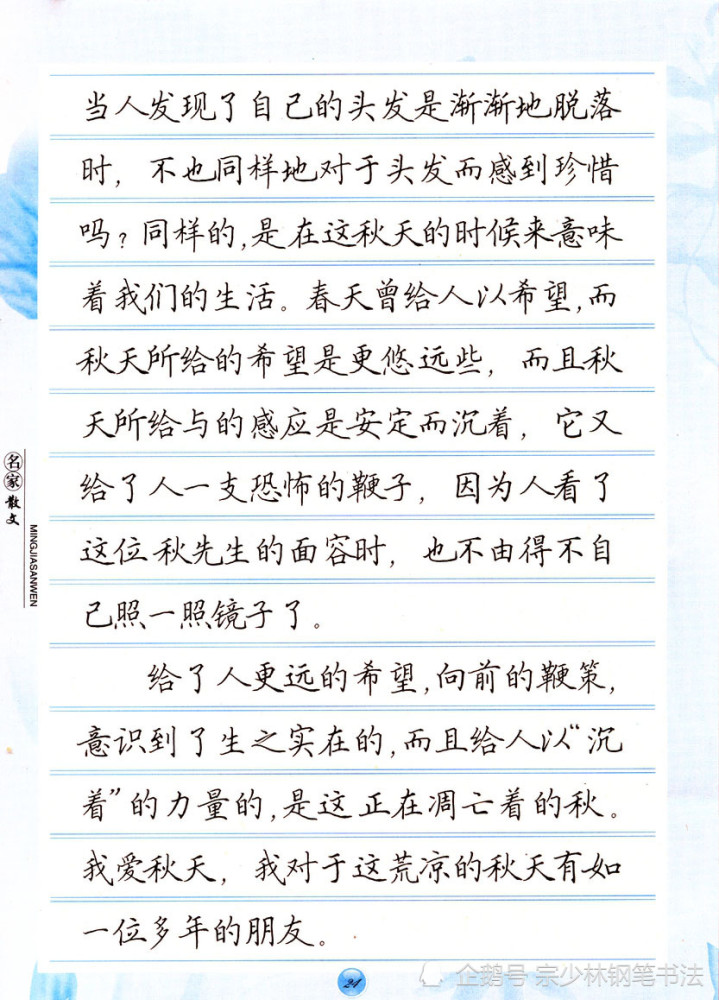 当人发现了自己的头发是渐渐地脱落
时，不也同样地对于头发而感到珍惜
吗？同样的，是在这秋天的时候来意味
着我们的生活。春天曾给人以希望，而
秋天所给的希望是更悠远些，而且秋
天所给与的感应是安定而沉着，它又
给了人一支恐怖的鞭子，因为人看了
这位秋先生的面容时，也不由得不自
己照一照镜子了。
给了人更远的希望，向前的鞭策，
意识到了生之实在的，而且给人以“沉
着”的力量的，是这正在凋亡着的秋。
我爱秋天，我对于这荒凉的秋天有如
一位多年的朋友。
名家散文
MINGJIASANWEN
24
企鹅号 宗少林钢笔书法